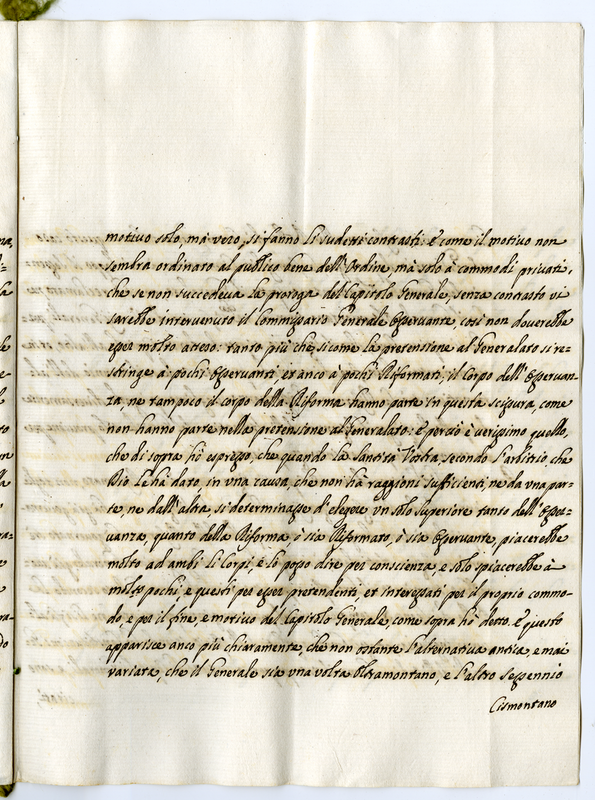 motivo solo, mà vero, si fanno li sudetti contrasti: E come il motivo non
sembra ordinato al publico bene dell'Ordine, mà solo à commodi privati,
che se non succedeva la proroga del Capitolo Generale, senza contrasto vi
sarebbe intervenuto il Commissario Generale Osservante, così non doverebbe
esser molto atteso: tanto più che, sicome la pretensione al Generalato si re=
stringe à pochi Osservanti et anco à pochi Riformati, il Corpo dell'Osservan=
za, ne tampoco il corpo della Riforma hanno parte in questa scissura, come
non hanno parte nella pretensione al Generalato: E perciò è verissimo quello,
che di sopra hò espresso, che quando la Santità Vostra, secondo l'arbitrio, che
Dio le hà dato in una causa, che non hà raggioni sufficienti, ne da una par=
te, ne dall'altra, si determinasse d'elegere un solo superiore tanto dell'Osser=
vanza, quanto della Riforma, ò sia Riformato, ò sia Osservante, piacerebbe
molto ad ambi li Corpi, e lo posso dire per conscienza, e solo spiacerebbe à
molto pochi, e questi per esser pretendenti, et interessati per il proprio commo=
do, e per il fine, e motivo del Capitolo Generale, come sopra hò detto. E questo
apparisce anco più chiaramente, che non ostante l'alternativa antica, e mai
variata, che il Generale sia una volta Oltramontano, e l'altro sessennio
Cismontano